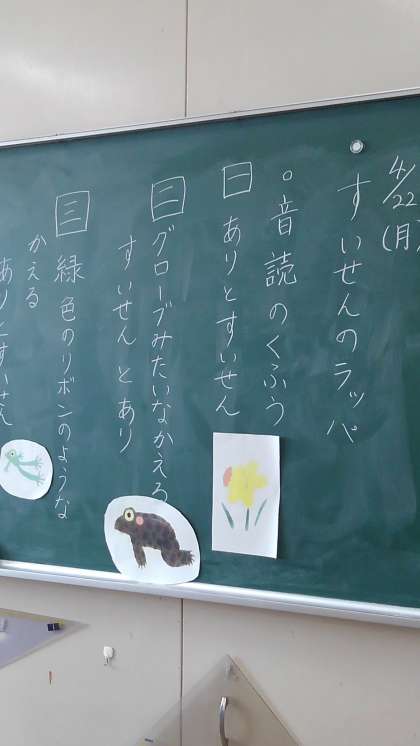 4/22(月)
すいせんのラッパ
○音読のくふう
一 ありとすいせん
二 グローブみたいなかえる
すいせんとあり
三 緑色のリボンのような
かえる
ありとすいせん